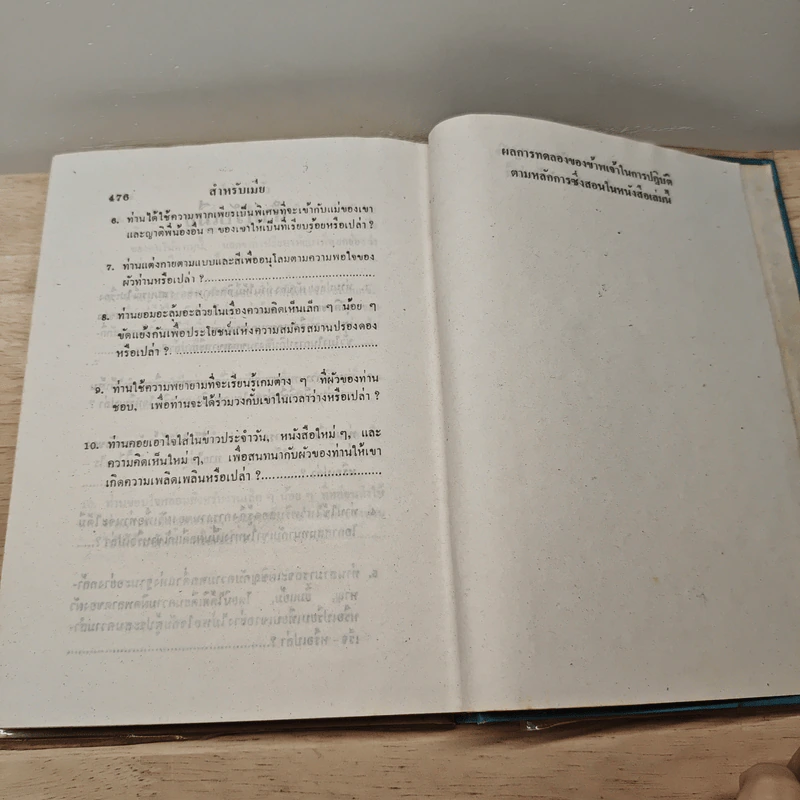 476
สำหรับเมีย
6. ท่านได้ใช้ความพากเพียรเป็นพิเศษที่จะเข้ากับแม่ของเขา
และญาติพี่น้องอื่น ๆ ของเขาให้เป็นที่เรียบร้อยหรือเปล่า ?
7. ท่านแต่งกายตามแบบและสีเพื่ออนุโลมตามความพอใจของ
ผัวท่านหรือเปล่า ?
8. ท่านยอมอะลุ้มอะล่วยในเรื่องความคิดเห็นเล็ก ๆ น้อย ๆ
ขัดแย้งกันเพื่อประโยชน์แห่งความสมัครสมานปรองดอง
หรือเปล่า ?
9. ท่านใช้ความพยายามที่จะเรียนรู้เกมต่าง ๆ ที่ผัวของท่าน
ชอบ, เพื่อท่านจะได้ร่วมวงกับเขาในเวลาว่างหรือเปล่า ?
10. ท่านคอยเอาใจใส่ในข่าวประจำวัน, หนังสือใหม่ ๆ, และ
ความคิดเห็นใหม่ ๆ, เพื่อสนทนากับผัวของท่านให้เขา
เกิดความเพลิดเพลินหรือเปล่า ?
ผลการทดลองของข้าพเจ้าในการปฏิบัติ
ตามหลักการซึ่งสอนในหนังสือเล่มนี้